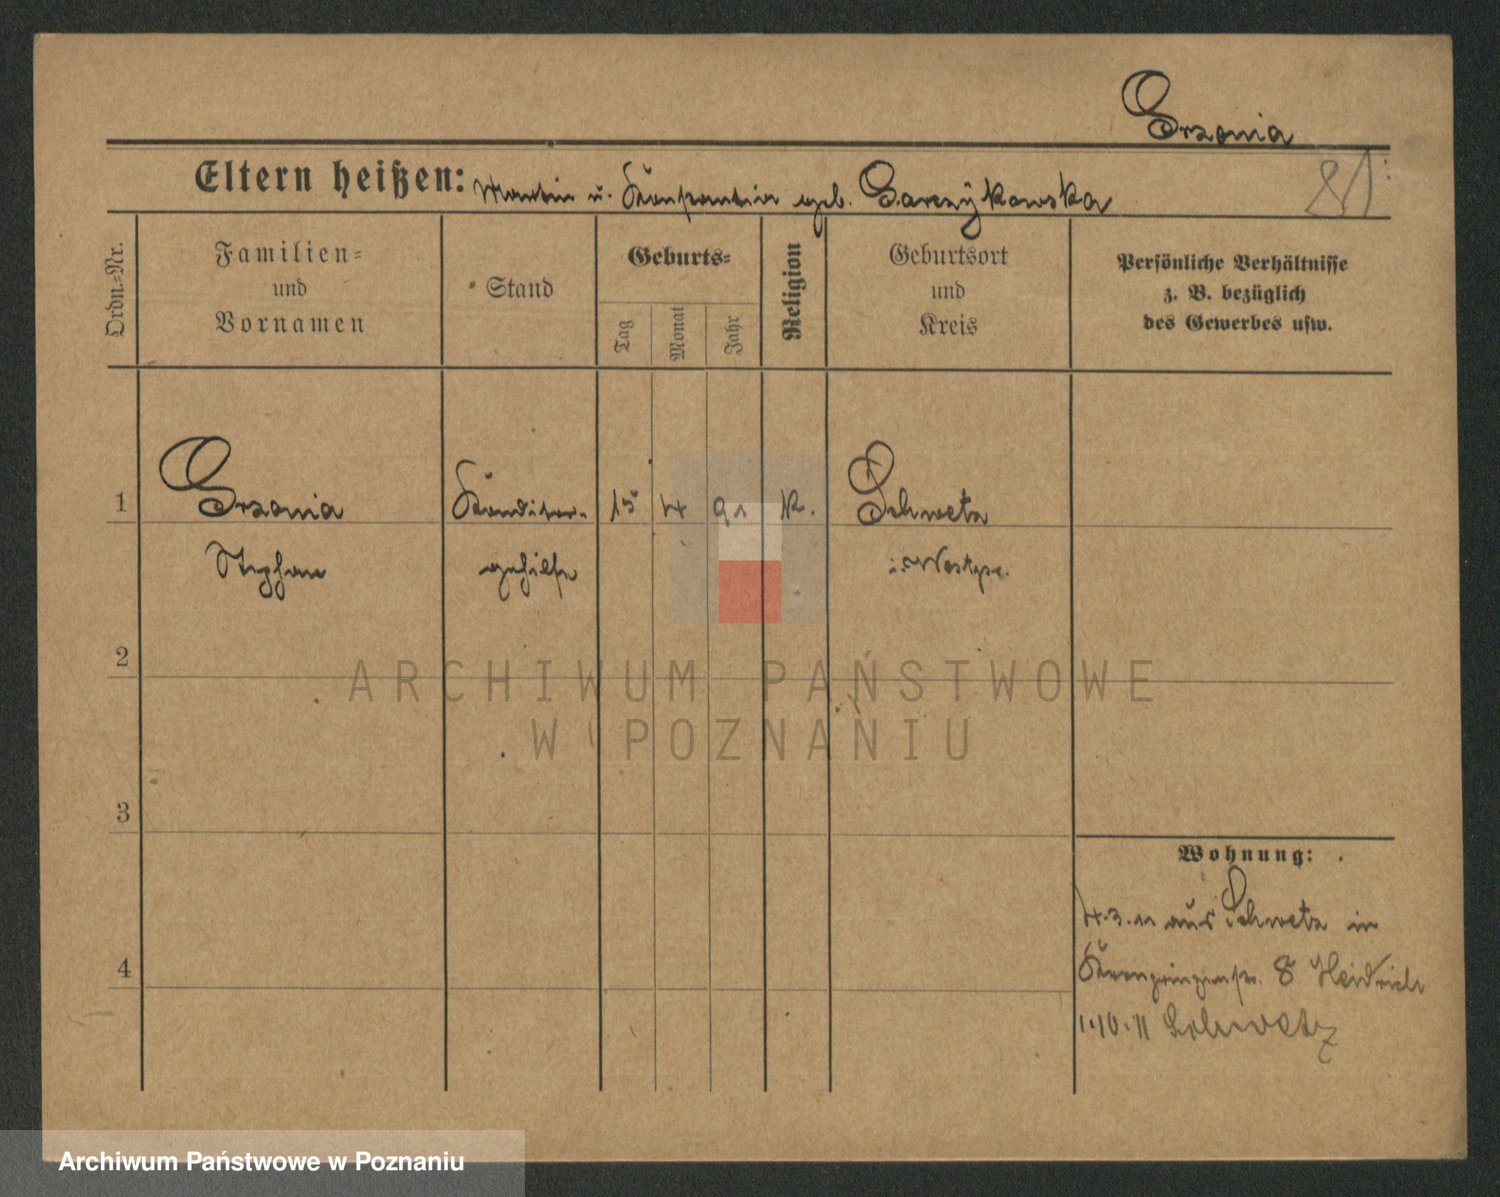 Grzonia
Eltern heißen: Martin u. Konstantia geb. Garczÿkowska
Ordn.-Nr.
Familien-
und
Vornamen
Stand
Geburts-
Tag
Monat
Jahr
Religion
Geburtsort
und
Kreis
Persönliche Verhältnisse
z. B. bezüglich
des Gewerbes usw.
1
Grzonia
Konditor-
15
4
91
K.
Schwetz
Stephan
gehilfe
i. Westpr.
2
3
4
Wohnung:
4.3.11 aus Schwetz in
Kronprinzenstr. 8 Heidrich
1.10.11 Schwetz
ARCHIWUM PAŃSTWOWE
W POZNANIU
Archiwum Państwowe w Poznaniu